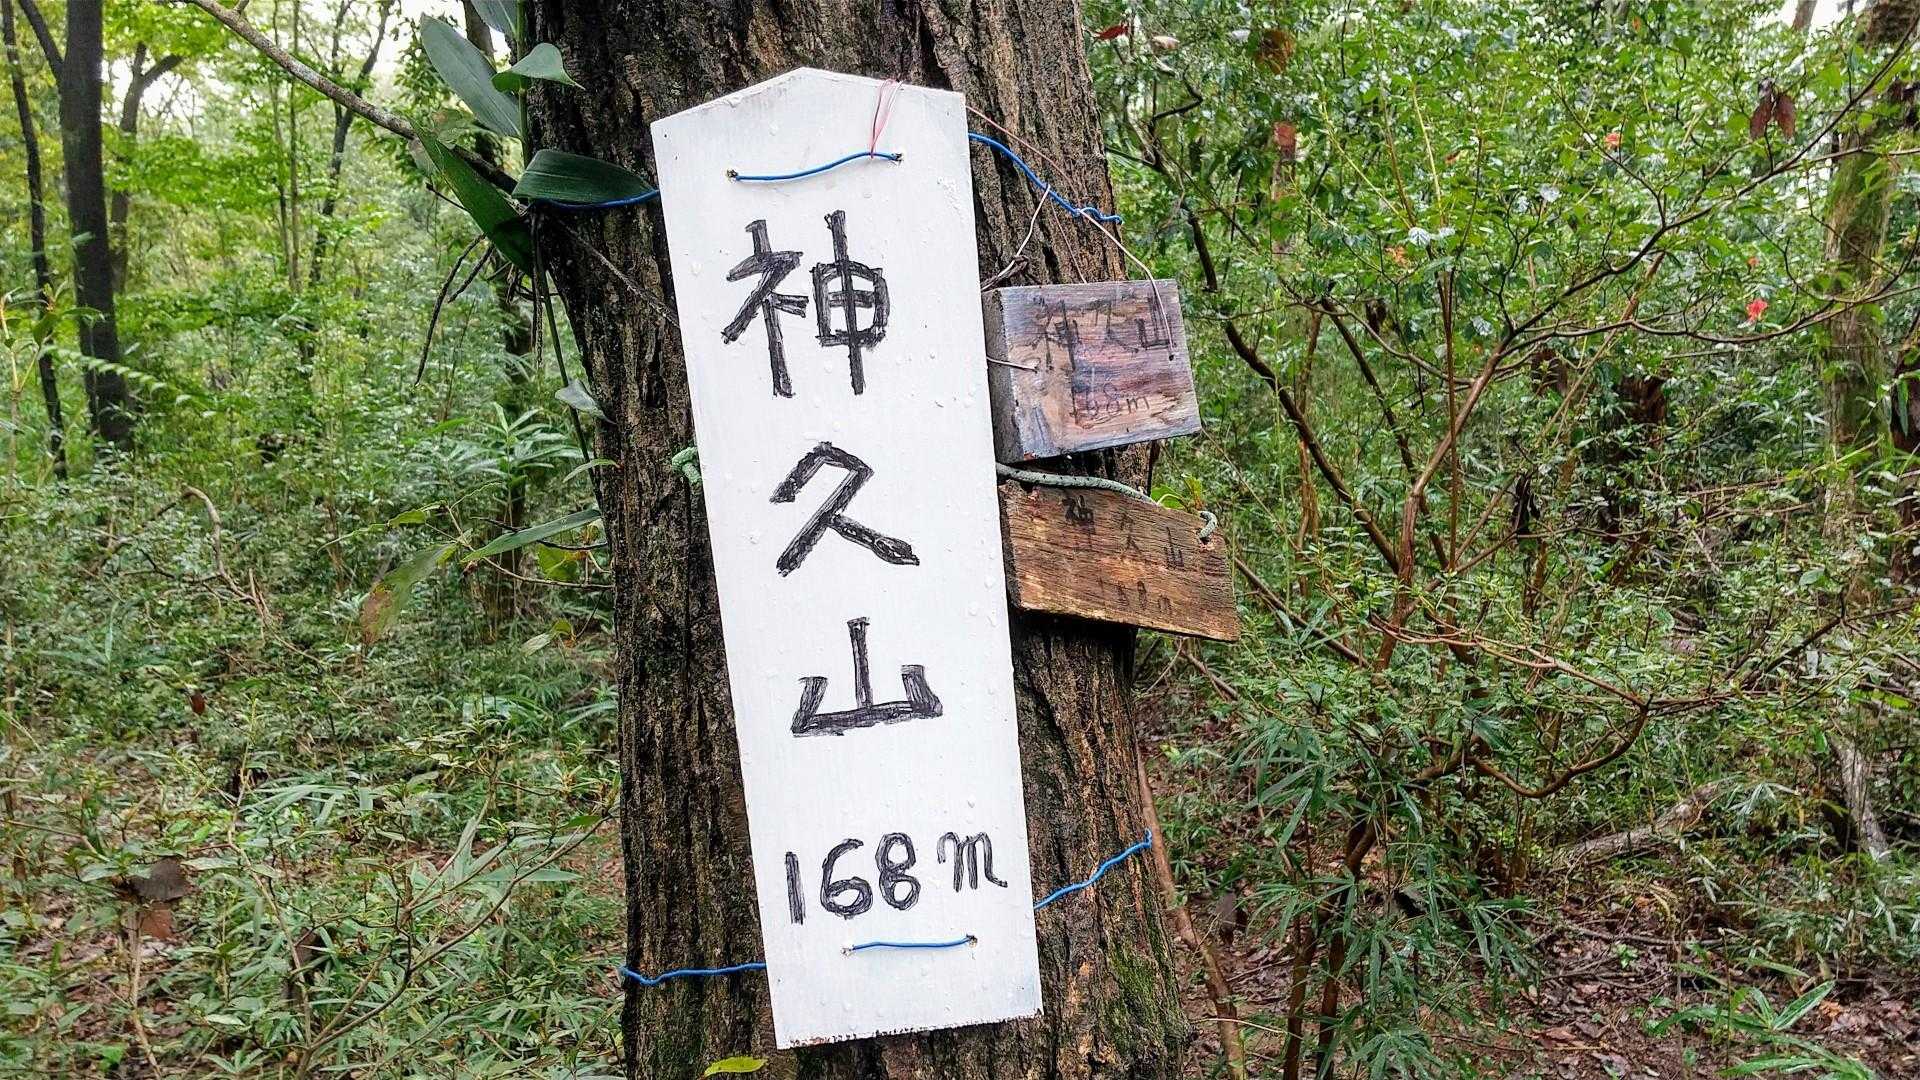 神久山
168m
神久山
168m
神久山